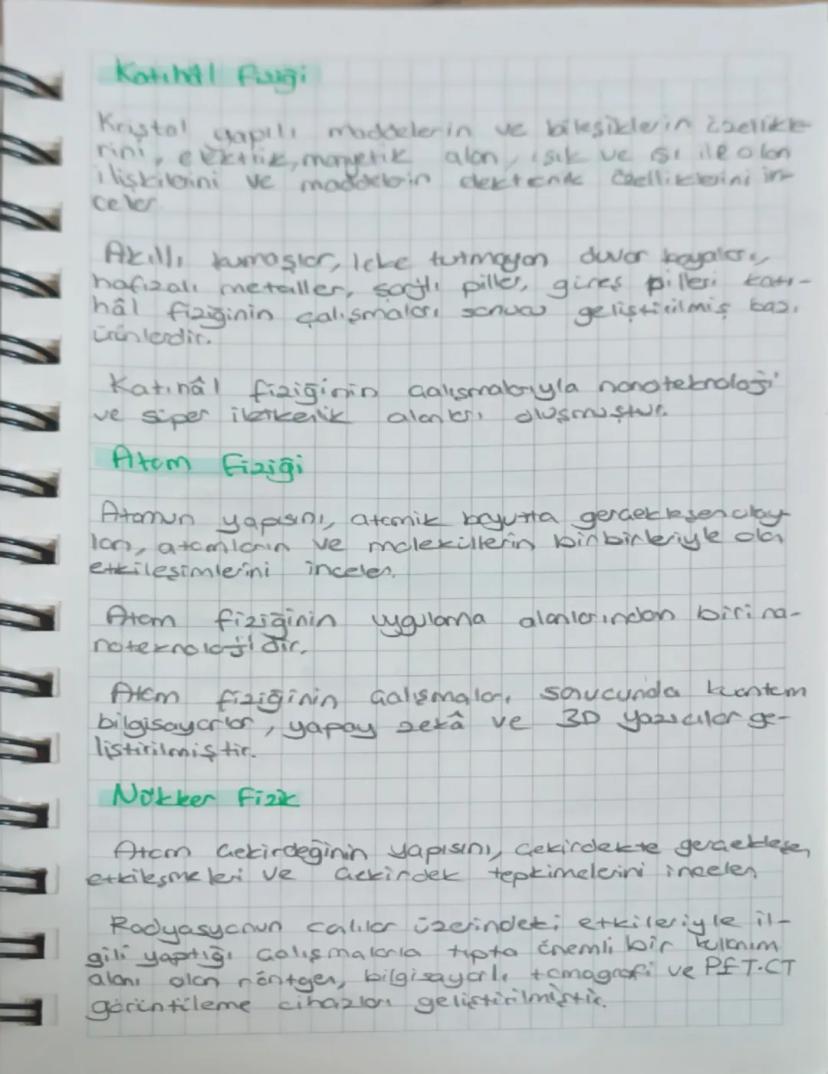 Katıhâl Fiziği
Kristal yapılı maddelerin ve bileşiklerin özellikle-
rini, elektrik, manyetik alan, ışık ve ısı ile olan
ilişkilerini ve maddelerin elektronik özelliklerini in-
celer.
Akıllı kumaşlar, leke tutmayan duvar boyaları,
hafızalı metaller, şarjlı piller, güneş pilleri katı-
hâl fiziğinin çalışmaları sonucu geliştirilmiş bazı
ürünlerdir.
Katıhâl fiziğinin çalışmalarıyla nanoteknoloji
ve süper iletkenlik alanları oluşmuştur.
Atom Fiziği
Atomun yapısını, atomik boyutta gerçekleşen olay-
ları, atomların ve moleküllerin birbirleriyle olan
etkileşimlerini inceler.
Atom fiziğinin uygulama alanlarından biri na-
noteknolojidir.
Atom fiziğinin çalışmaları sonucunda kuantum
bilgisayarlar, yapay zekâ ve 3D yazıcılar ge-
liştirilmiştir.
Nükleer Fizik
Atom çekirdeğinin yapısını, çekirdekte gerçekleşen
etkileşmeleri ve çekirdek tepkimelerini inceler.
Radyasyonun canlılar üzerindeki etkileriyle il-
gili yaptığı çalışmalarla tıpta önemli bir kullanım
alanı olan röntgen, bilgisayarlı tomografi ve PET-CT
görüntüleme cihazları geliştirilmiştir.